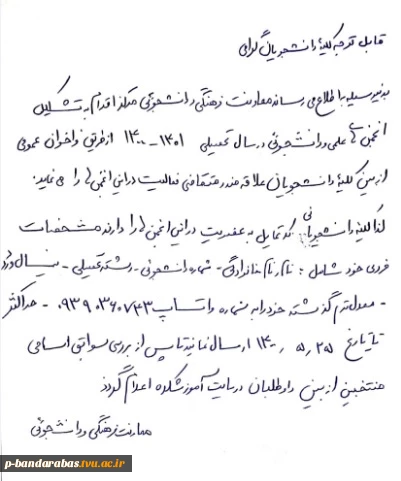 قابل توجه کلیهٔ دانشجویان گرامی
بدینوسیله به اطلاع می رساند معاونت فرهنگی دانشجویی مرکز اقدام به تشکیل
انجمن های علمی دانشجوئی در سال تحصیلی ۱۴۰۱-۱۴۰۰ از طریق فراخوان عمومی
از بین کلیهٔ دانشجویان علاقه مند و متقاضی فعالیت در این انجمن ها را می نماید.
لذا کلیهٔ دانشجویانی که تمایل به عضویت در این انجمن ها را دارند مشخصات
فردی خود شامل: نام و نام خانوادگی - شماره دانشجویی - رشته تحصیلی - نیمسال ورود
- معدل ترم گذشته خود را به شماره واتساپ ۰۹۳۹۰۳۶۰۷۴۳ - حداکثر
تا تاریخ ۱۴۰۰/۵/۲۵ ارسال نمائید تا پس از بررسی سوابق اسامی
منتخبین از بین داوطلبان در سایت آموزشکده اعلام گردد
معاونت فرهنگی و دانشجوئی
p-bandarabas.tvu.ac.ir